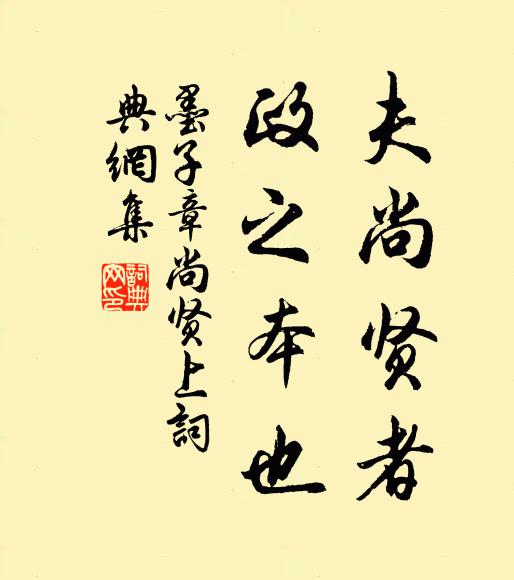 夫尚贤者
政之本也
墨子章尚贤上詞
典網集
詞典
网印